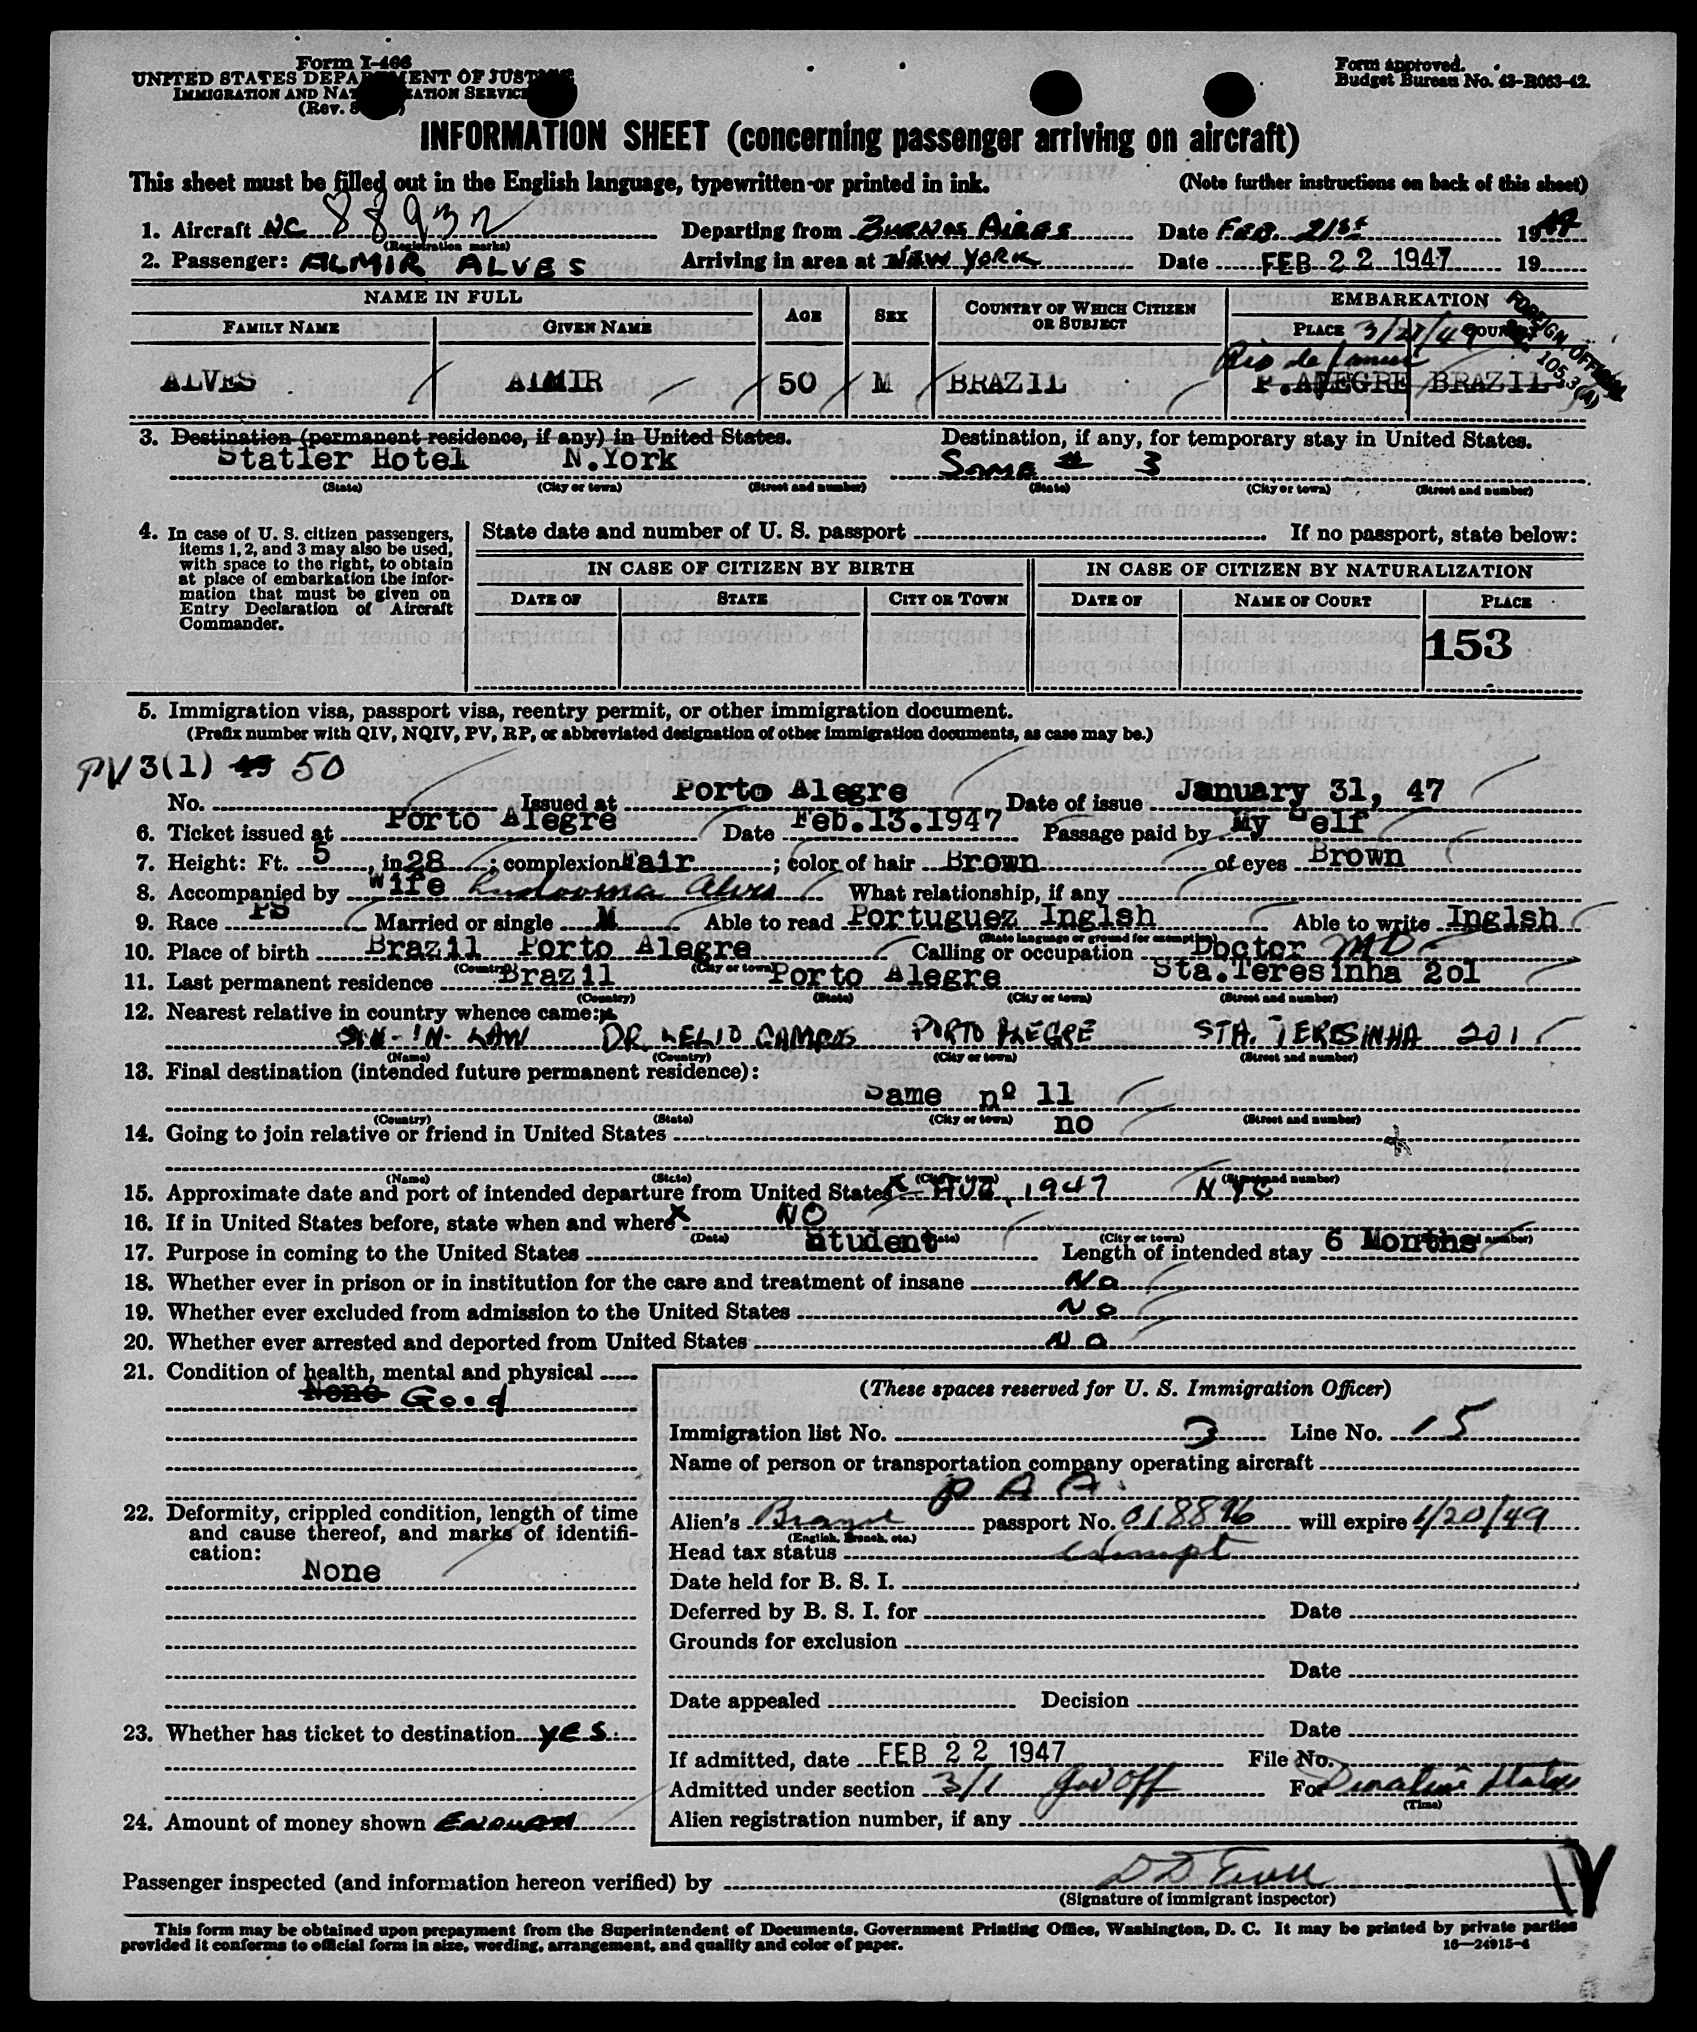 Form I-466
UNITED STATES DEPARTMENT OF JUSTICE
IMMIGRATION AND NATURALIZATION SERVICE
(Rev. 8
Form approved.
Budget Bureau No. 43-R063-42.
INFORMATION SHEET (concerning passenger arriving on aircraft)
This sheet must be filled out in the English language, typewritten or printed in ink. (Note further instructions on back of this sheet)
1. Aircraft NC 88932 Departing from BUENOS AIRES Date FEB. 21st 1947
(Registration marks)
2. Passenger: ALMIR ALVES Arriving in area at NEW YORK Date FEB 22 1947 19
NAME IN FULL AGE SEX COUNTRY OF WHICH CITIZEN OR SUBJECT EMBARKATION
FAMILY NAME GIVEN NAME PLACE COUNTRY
3/21/49
FOREIGN OFFICIAL
SEC. 105.3(A)
Rio de Janeiro
ALVES ALMIR 50 M BRAZIL P.ALEGRE BRAZIL
3. Destination (permanent residence, if any) in United States. Destination, if any, for temporary stay in United States.
Statler Hotel N.York Same # 3
(State) (City or town) (Street and number) (State) (City or town) (Street and number)
4. In case of U. S. citizen passengers, items 1, 2, and 3 may also be used, with space to the right, to obtain at place of embarkation the information that must be given on Entry Declaration of Aircraft Commander.
State date and number of U. S. passport If no passport, state below:
IN CASE OF CITIZEN BY BIRTH IN CASE OF CITIZEN BY NATURALIZATION
DATE OF STATE CITY OR TOWN DATE OF NAME OF COURT PLACE
153
5. Immigration visa, passport visa, reentry permit, or other immigration document.
(Prefix number with QIV, NQIV, PV, RP, or abbreviated designation of other immigration documents, as case may be.)
PV 3(1) 50
No. Issued at Porto Alegre Date of issue January 31, 47
6. Ticket issued at Porto Alegre Date Feb.13.1947 Passage paid by My Self
7. Height: Ft. 5, in 28; complexion Fair; color of hair Brown of eyes Brown
8. Accompanied by Wife Ludovina Alves What relationship, if any
9. Race PS Married or single M Able to read Portuguez Inglsh Able to write Inglsh
(State language or ground for exemption)
10. Place of birth Brazil Porto Alegre Calling or occupation Doctor MD
(Country) (City or town)
11. Last permanent residence Brazil Porto Alegre Sta.Teresinha 2ol
(Country) (State) (City or town) (Street and number)
12. Nearest relative in country whence came:
SON-IN-LAW DR LELIO CAMPOS PORTO ALEGRE STA. TERESINHA 201
(Name) (Country) (City or town) (Street and number)
13. Final destination (intended future permanent residence):
Same nº 11
(Country) (State) (City or town) (Street and number)
14. Going to join relative or friend in United States no
(Name) (State) (City or town) (Street and number)
15. Approximate date and port of intended departure from United States x AUG, 1947 NYC
16. If in United States before, state when and where x NO
(Date) (State) (City or town) (Street and number)
17. Purpose in coming to the United States Student Length of intended stay 6 Months
18. Whether ever in prison or in institution for the care and treatment of insane No
19. Whether ever excluded from admission to the United States No
20. Whether ever arrested and deported from United States No
21. Condition of health, mental and physical
None Good
22. Deformity, crippled condition, length of time and cause thereof, and marks of identification:
None
23. Whether has ticket to destination yes.
24. Amount of money shown ENOUGH
(These spaces reserved for U. S. Immigration Officer)
Immigration list No. 3 Line No. 15
Name of person or transportation company operating aircraft
P A A.
Alien's passport No. 018896 will expire 1/20/49
(English, French, etc.)
Head tax status exempt
Date held for B. S. I.
Deferred by B. S. I. for Date
Grounds for exclusion
Date
Date appealed Decision
Date
If admitted, date FEB 22 1947 File No.
Admitted under section 3/1 gov Off For Duration Status
(Time)
Alien registration number, if any
Passenger inspected (and information hereon verified) by
(Signature of immigrant inspector)
This form may be obtained upon prepayment from the Superintendent of Documents, Government Printing Office, Washington, D. C. It may be printed by private parties
provided it conforms to official form in size, wording, arrangement, and quality and color of paper. 16—24915-4